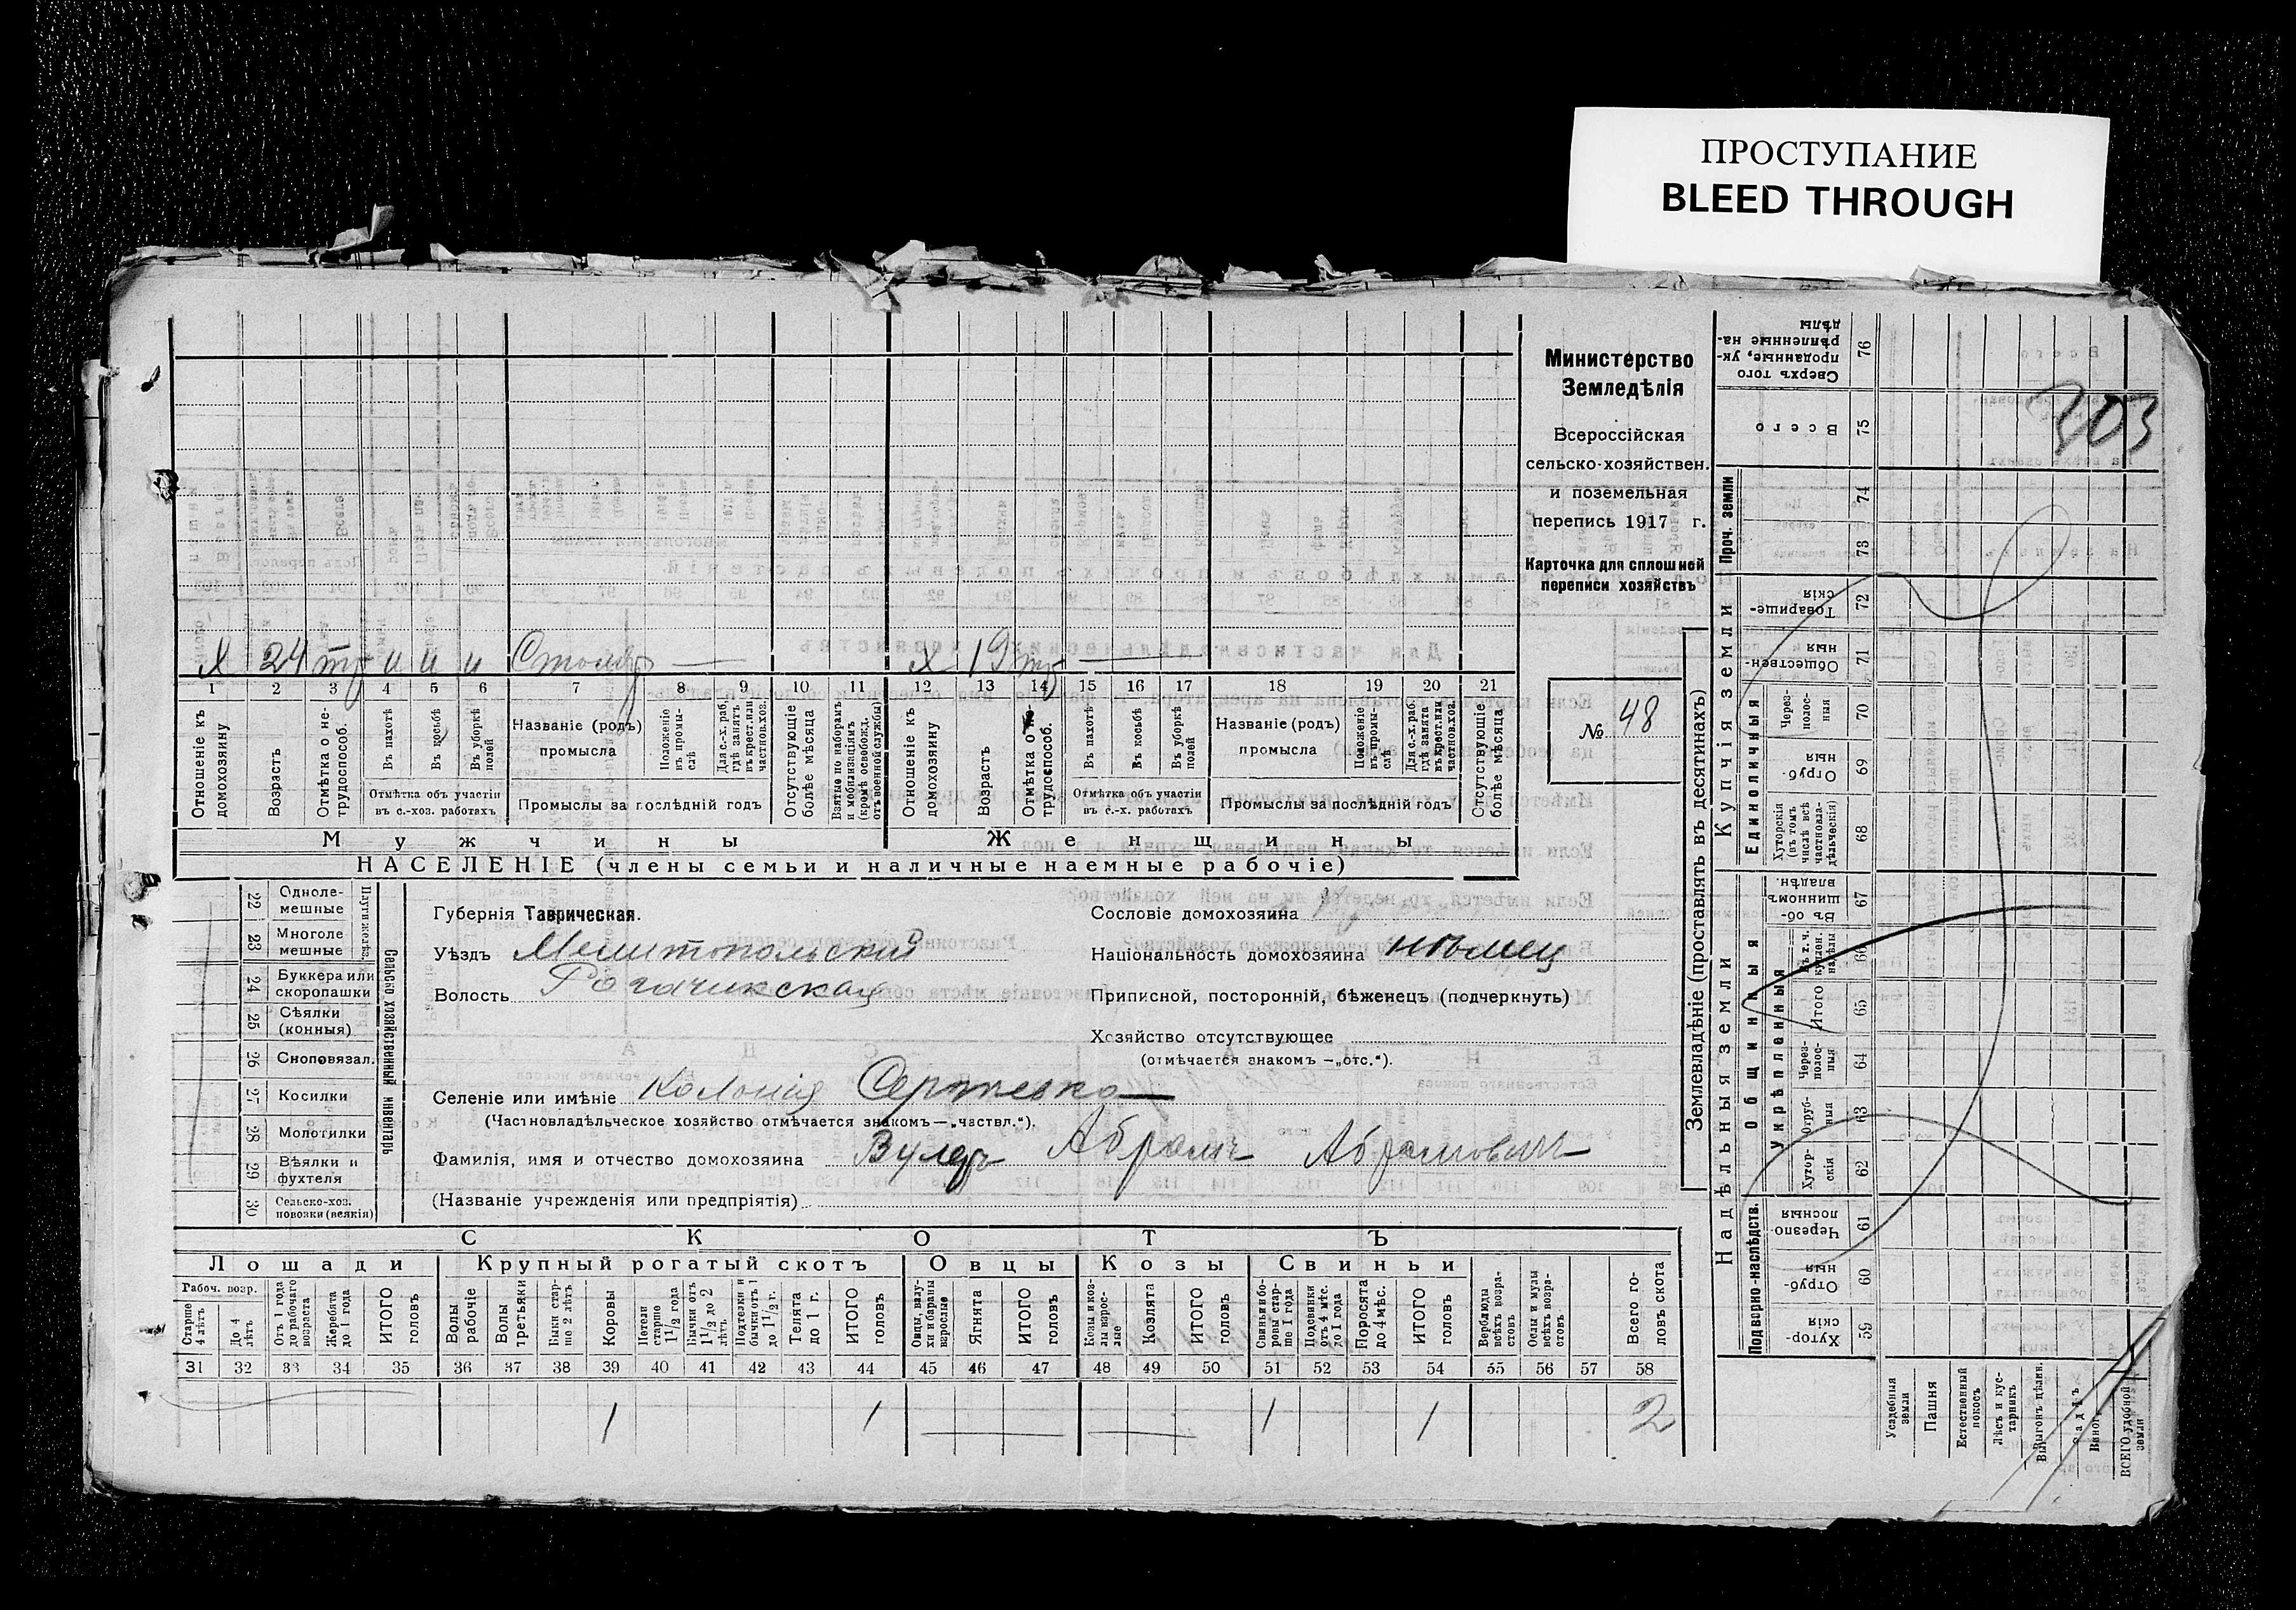 ПРОСТУПАНИЕ
BLEED THROUGH
303
Министерство
Земледѣлія
Всероссійская
сельско-хозяйствен.
и поземельная
перепись 1917 г.
Карточка для сплошной
переписи хозяйствъ
№ 48
Х 24 тр и и и Столяр — Х 19 тр —
1 2 3 4 5 6 7 8 9 10 11 12 13 14 15 16 17 18 19 20 21
Отношеніе къ домохозяину
Возрастъ
Отмѣтка о не-трудоспособ.
Въ пахотѣ
Въ косьбѣ
Въ уборкѣ полей
Отмѣтка объ участіи въ с.-хоз. работахъ
Названіе (родъ) промысла
Положеніе въ промы-слѣ
Для с.-х. раб. гдѣ занятъ въ крест. или частнов. хоз.
Промыслы за послѣдній годъ
Отсутствующіе болѣе мѣсяца
Взятые по наборамъ и мобилизаціямъ (кромѣ освобожд. отъ военной службы)
Отношеніе къ домохозяину
Возрастъ
Отмѣтка о не-трудоспособ.
Въ пахотѣ
Въ косьбѣ
Въ уборкѣ полей
Отмѣтка объ участіи въ с.-х. работахъ
Названіе (родъ) промысла
Положеніе въ промы-слѣ
Для с.-х. раб. гдѣ занята въ крест. или частнов. хоз.
Промыслы за послѣдній годъ
Отсутствующіе болѣе мѣсяца
Мужчины Женщины
НАСЕЛЕНІЕ (члены семьи и наличные наемные рабочіе)
22 Одноле-мешные
23 Многоле мешные
24 Буккера или скоропашки
25 Сѣялки (конныя)
26 Сноповязал.
27 Косилки
28 Молотилки
29 Вѣялки и фухтеля
30 Сельско-хоз. повозки (всякія)
Плуги желѣз.
Сельско хозяйственный инвентарь
Губернія Таврическая.
Уѣздъ Мелитопольскій
Волость Рогачикская
Сословіе домохозяина
Національность домохозяина нѣмец
Приписной, посторонній, бѣженецъ (подчеркнуть)
Хозяйство отсутствующее
(отмѣчается знакомъ —„отс.“).
Селеніе или имѣніе Колонія Сергѣевка
(Частновладѣльческое хозяйство отмѣчается знакомъ—„частвл.“).
Фамилія, имя и отчество домохозяина Абрамъ Абрамовичъ
(Названіе учрежденія или предпріятія)
СКОТЪ
Лошади Крупный рогатый скотъ Овцы Козы Свиньи
Рабоч. возр.
Старше 4 лѣтъ
До 4 лѣтъ
Отъ 1 года до рабочаго возраста
Жеребята до 1 года
ИТОГО головъ
Волы рабочіе
Волы третьяки
Быки стар-ше 2 лѣтъ
Коровы
Нетели старше 1 1/2 года
Бычки отъ 1 1/2 до 2 лѣтъ
Подтелки и бычки отъ 1 до 1 1/2 г.
Телята до 1 г.
ИТОГО головъ
Овцы, валу-хи и бараны взрослые
Ягнята
ИТОГО головъ
Козы и коз-лы взрос-лые
Козлята
ИТОГО головъ
Свиньи и бо-ровы стар-ше 1 года
Подсвинки отъ 4 мѣс. до 1 года
Поросята до 4 мѣс.
ИТОГО головъ
Верблюды всѣхъ возра-стовъ
Ослы и мулы всѣхъ возра-стовъ
Всего го-ловъ скота
31 32 33 34 35 36 37 38 39 40 41 42 43 44 45 46 47 48 49 50 51 52 53 54 55 56 57 58
1 1 — — 1 1 2
Землевладѣніе (проставлять въ десятинахъ)
Надѣльныя земли Купчія земли Проч. земли
Подворно-наслѣдств.
Общинныя
Укрѣпленныя
Единоличныя
Хутор-скія 59
Отруб-ныя 60
Черезпо-лосныя 61
Хутор-скія 62
Отруб-ныя 63
Черезполос-ныя 64
Итого 65
Въ т. ч. куплен. надѣлы 66
Въ об-щинномъ владѣн. 67
Хуторскія (въ томъ числѣ всѣ частновла-дѣльческія) 68
Отруб-ныя 69
Через-полос-ныя 70
Обществен-ныя 71
Товарище-скія 72
73
74
Всего 75
Сверхъ того проданные, ук-рѣпленные на-дѣлы 76
Усадебныя земли
Пашня
Естественный покосъ
Лѣсъ и кус-тарникъ
Выгонъ цѣлин.
Садъ
Виногр.
ВСЕГО удобной земли